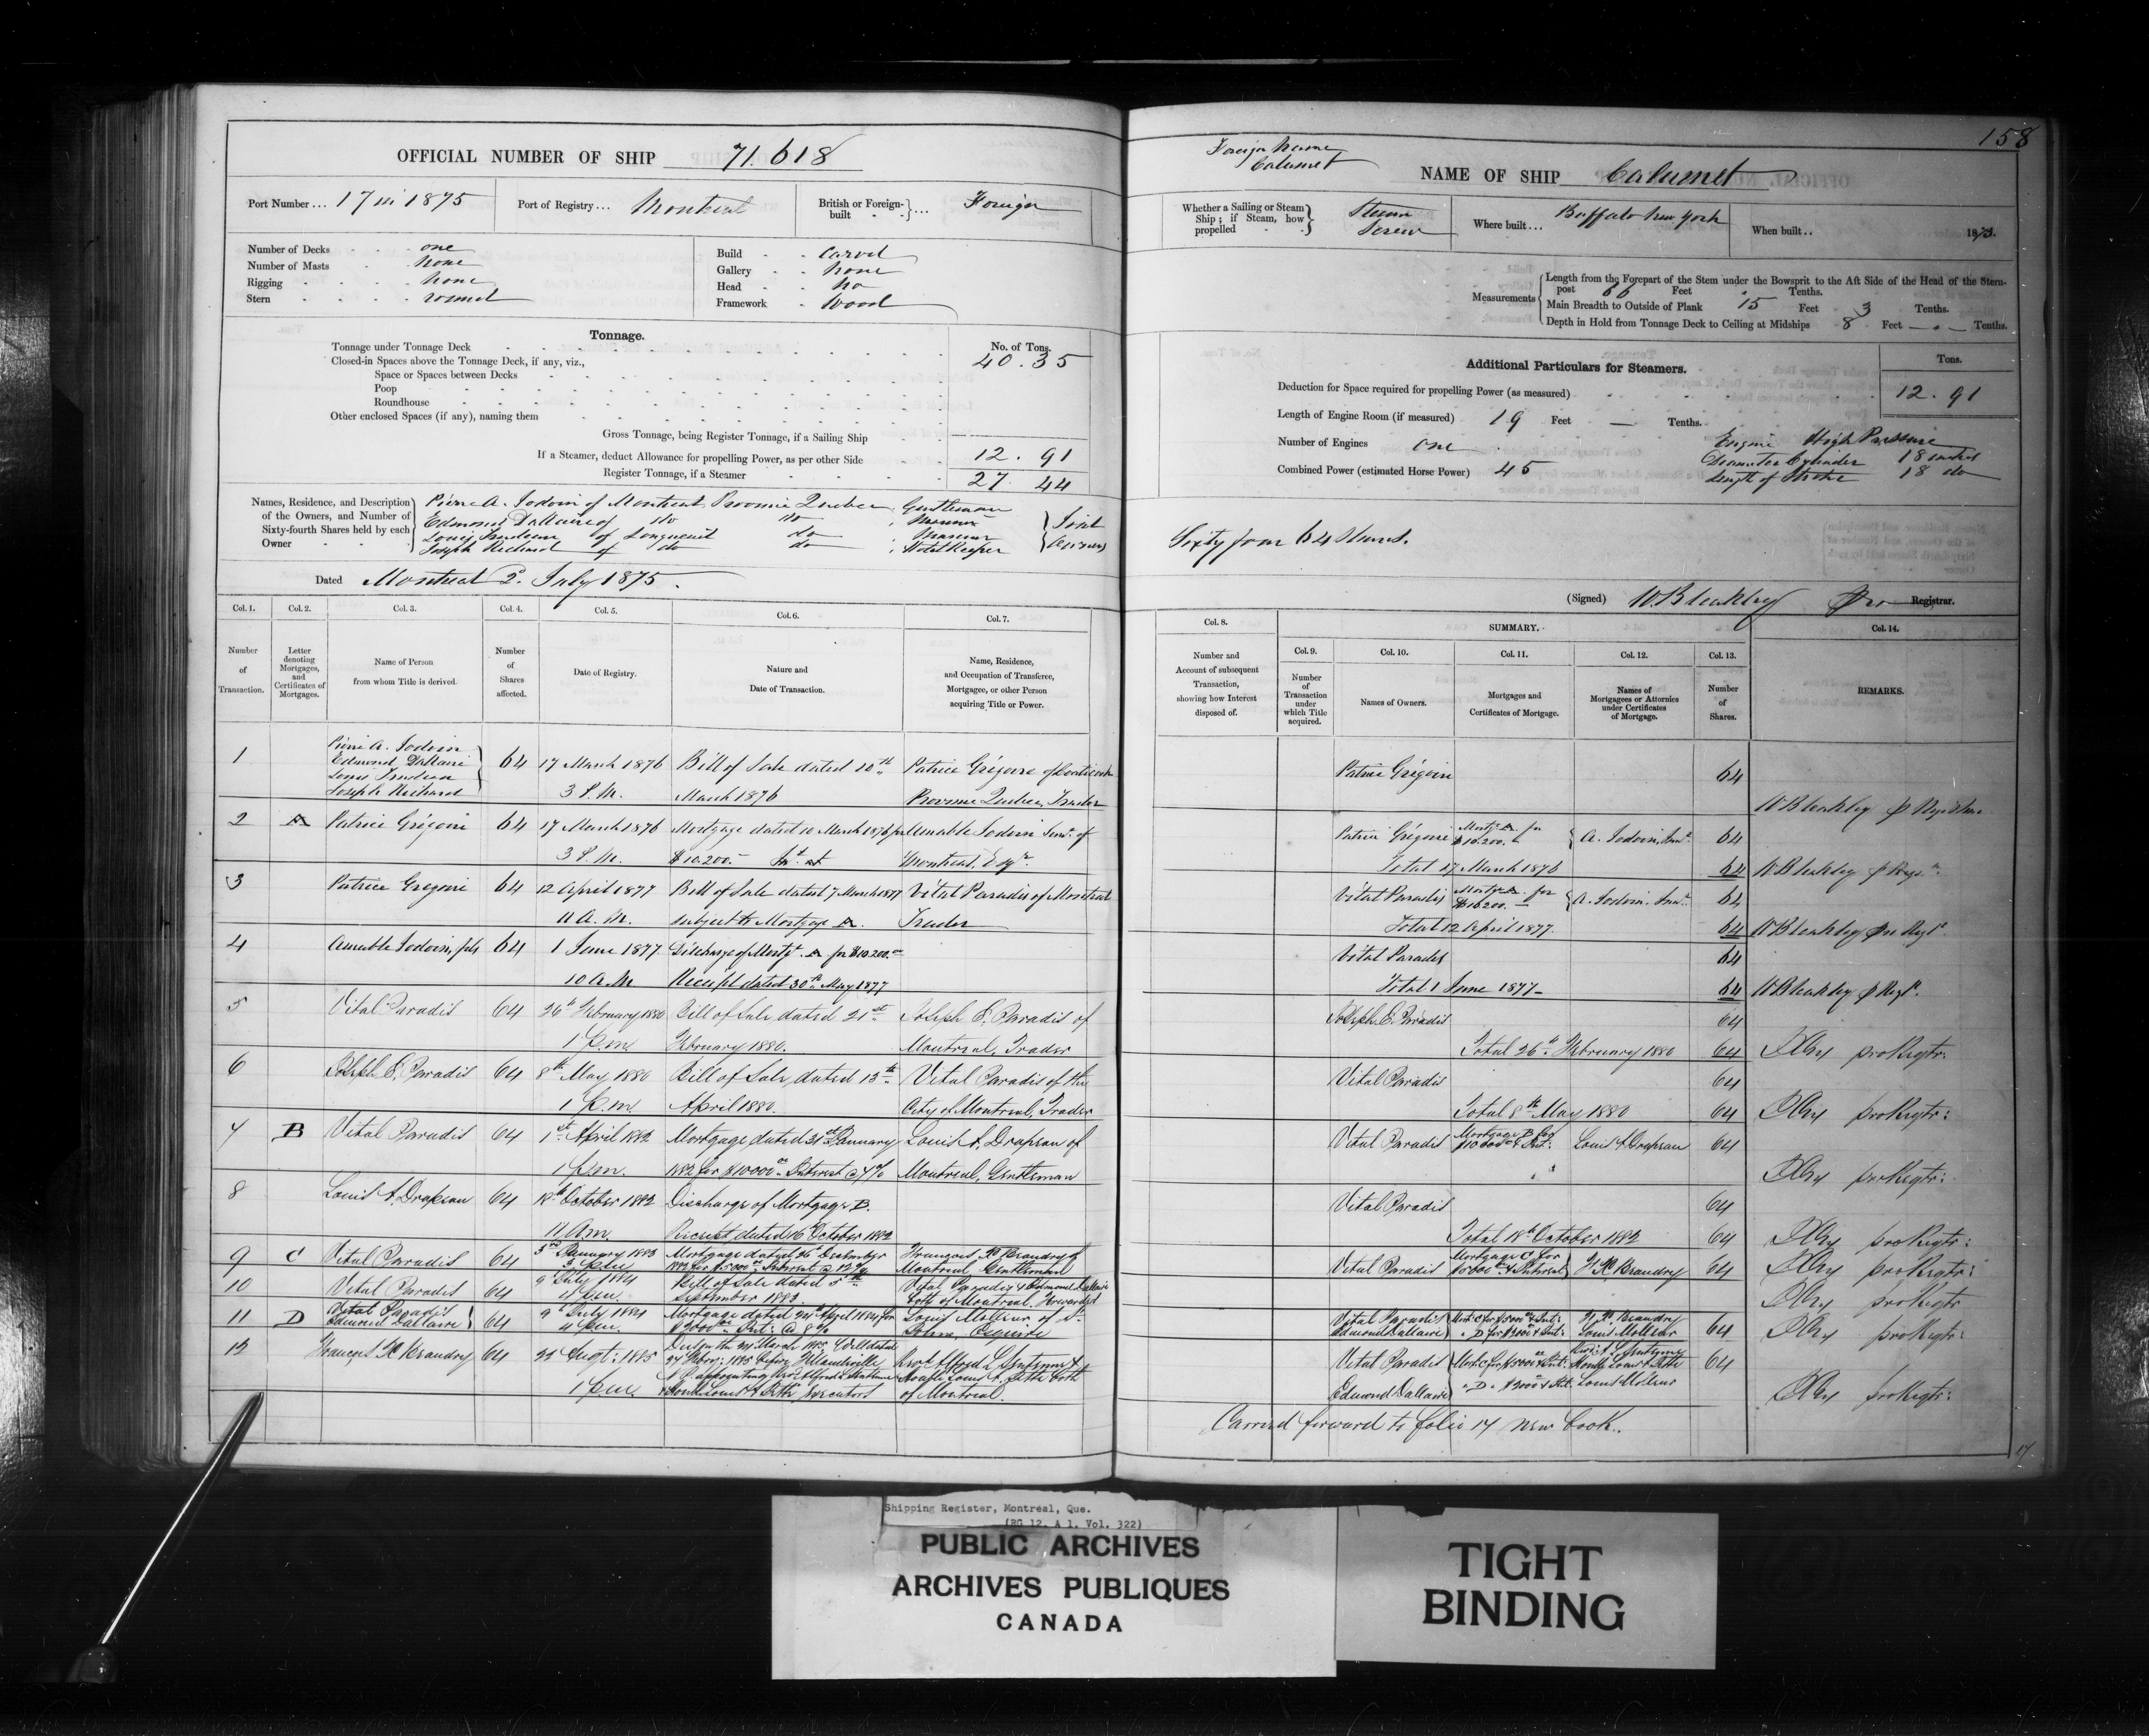 OFFICIAL NUMBER OF SHIP 71.618
Port Number ... 17 in 1875
Port of Registry ... Montreal
British or Foreign-built } ... Foreign
Number of Decks one
Number of Masts none
Rigging none
Stern round
Build Carvel
Gallery none
Head no
Framework Wood
Tonnage.
No. of Tons.
Tonnage under Tonnage Deck 40.35
Closed-in Spaces above the Tonnage Deck, if any, viz.,
Space or Spaces between Decks
Poop
Roundhouse
Other enclosed Spaces (if any), naming them
Gross Tonnage, being Register Tonnage, if a Sailing Ship
If a Steamer, deduct Allowance for propelling Power, as per other Side 12.91
Register Tonnage, if a Steamer 27.44
Names, Residence, and Description of the Owners, and Number of Sixty-fourth Shares held by each Owner
Pierre A. Jodoin of Montreal Province Quebec, Gentleman
Edmond Dallaire of do do, Mariner
Louis Trudeau of Longueuil do, Mariner
Joseph Richard of do do, Hotel Keeper
} Joint Owners
Dated Montreal 2d. July 1875.
Col. 1. Col. 2. Col. 3. Col. 4. Col. 5. Col. 6. Col. 7.
Number of Transaction.
Letter denoting Mortgages, and Certificates of Mortgages.
Name of Person from whom Title is derived.
Number of Shares affected.
Date of Registry.
Nature and Date of Transaction.
Name, Residence, and Occupation of Transferee, Mortgagee, or other Person acquiring Title or Power.
1 Pierre A. Jodoin Edmond Dallaire Louis Trudeau Joseph Richard } 64 17 March 1876 3 P.M. Bill of Sale dated 10th March 1876 Patrice Grégoire of Province Quebec, Trader
2 A Patrice Grégoire 64 17 March 1876 3 P.M. Mortgage dated 10 March 1876 for $10.200.- Amable Jodoin Senr. of Montreal, Esqr.
3 Patrice Gregoire 64 12 April 1877 11 A.M. Bill of Sale dated 7 March 1877 subject to Mortgage A. Vital Paradis of Montreal Trader
4 Amable Jodoin, 64 1 June 1877 10 A.M Discharge of Mortg. A for $10.200.00 Receipt dated 30th May 1877
5 Vital Paradis 64 26th February 1880 1 p.m. Bill of Sale dated 21st February 1880. Joseph E. Paradis of Montreal, Trader
6 Joseph E. Paradis 64 8th May 1880 1 p.m. Bill of Sale dated 13th April 1880. Vital Paradis of the City of Montreal, Trader
7 B Vital Paradis 64 1st April 1882 1 p.m. Mortgage dated 31st January 1882 for $10000 Interest @ 7% Louis A. Drapeau of Montreal, Gentleman
8 Louis A. Drapeau 64 18th October 1882 11 A.m. Discharge of Mortgage B. Receipt dated 16 October 1882
9 C Vital Paradis 64 3rd January 1883 3 p.m. Mortgage dated 26 December 1882 for $5000 Interest @ 12% François X Beaudry of Montreal Gentleman
10 Vital Paradis 64 9 July 1884 4 p.m. Bill of Sale dated 5th September 1883. Vital Paradis & Edmond Dallaire both of Montreal. Forwarders
11 D Vital Paradis Edmond Dallaire } 64 9 July 1884 4 p.m. Mortgage dated 24th April 1884 for $2000 Int: @ 8% Louis Molleur of St. Johns, Esquire
12 François X Beaudry 64 22 Sept: 1885 1 p.m. of Montreal.
158
Foreign Name Calumet
NAME OF SHIP Calumet
Whether a Sailing or Steam Ship; if Steam, how propelled } Steam Screw
Where built ... Buffalo New York
When built .. 1873.
Measurements { Length from the Forepart of the Stem under the Bowsprit to the Aft Side of the Head of the Stern-post 66 Feet Tenths.
Main Breadth to Outside of Plank 15 Feet 3 Tenths.
Depth in Hold from Tonnage Deck to Ceiling at Midships 8 Feet — Tenths.
Additional Particulars for Steamers.
Tons.
Deduction for Space required for propelling Power (as measured) 12.91
Length of Engine Room (if measured) 19 Feet — Tenths.
Number of Engines one
Combined Power (estimated Horse Power) 45
Engine High Pressure
Diameter Cylinder 18 inches
Length of Stroke 18 do
Sixty four 64 Shares.
(Signed) W Bleakley Pro Registrar.
Col. 8. SUMMARY. Col. 14.
Col. 9. Col. 10. Col. 11. Col. 12. Col. 13.
Number and Account of subsequent Transaction, showing how Interest disposed of.
Number of Transaction under which Title acquired.
Names of Owners.
Mortgages and Certificates of Mortgage.
Names of Mortgagees or Attornies under Certificates of Mortgage.
Number of Shares.
REMARKS.
Patrice Grégoire 64 W Bleakley p Registrar
Patrice Grégoire Mortge A. for $10.200. { A. Jodoin, Senr. 64
Total 17 March 1876 64 W Bleakley p Regr.
Vital Paradis Mortge A. for $10200.— { A. Jodoin. Senr. 64
Total 12 April 1877. 64 W Bleakley pro Regr.
Vital Paradis 64
Total 1 June 1877— 64 W Bleakley p Regr.
Joseph E. Paradis 64
Total 26th February 1880 64 pro Regtr:
Vital Paradis 64
Total 8th May 1880 64 pro Regtr:
Vital Paradis Mortgage B for $10000 & Int: Louis A Drapeau 64
pro Regtr:
Vital Paradis 64
Total 18th October 1882 64 pro Regtr:
Vital Paradis Mortgage C for $5000 & Interest } F X Beaudry 64 pro Regtr:
pro Regtr
Vital Paradis Edmond Dallaire } Mort: C for $5000 & Int: " D for $2000 & Int: F. X. Beaudry Louis Molleur 64 pro Regtr:
Vital Paradis Edmond Dallaire } Mort: C for $5000 & Int: " D " $2000 & Int: Louis Molleur 64
pro Regtr:
Carried forward to folio 17 New Book.
17
Shipping Register, Montréal, Que.
(RG 12, A 1, Vol. 322)
PUBLIC ARCHIVES
ARCHIVES PUBLIQUES
CANADA
TIGHT
BINDING